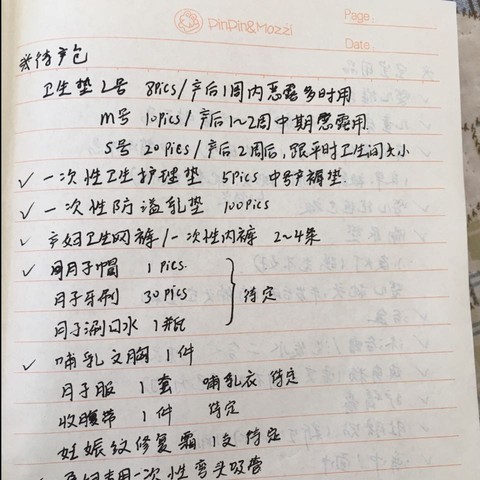 PinPin&Mozzi
Page:
Date:
※待产包
卫生垫 L号 8pics/产后1周内恶露多时用
M号 10pics/产后1~2周中期恶露用
S号 20pics/产后2周后,跟平时卫生间大小
✓ 一次性卫生护理垫 5pics 中号产褥垫
✓ 一次性防溢乳垫 100pics
✓ 产妇卫生网裤/一次性内裤 2~4条
✓ 月子帽 1pics.
月子牙刷 30pics 待定
月子漱口水 1瓶
✓ 哺乳文胸 1件
月子服 1套 哺乳衣 待定
收腹带 1件 待定
妊娠纹修复霜 1支 待定
✓ 孕妇专用一次性弯头吸管